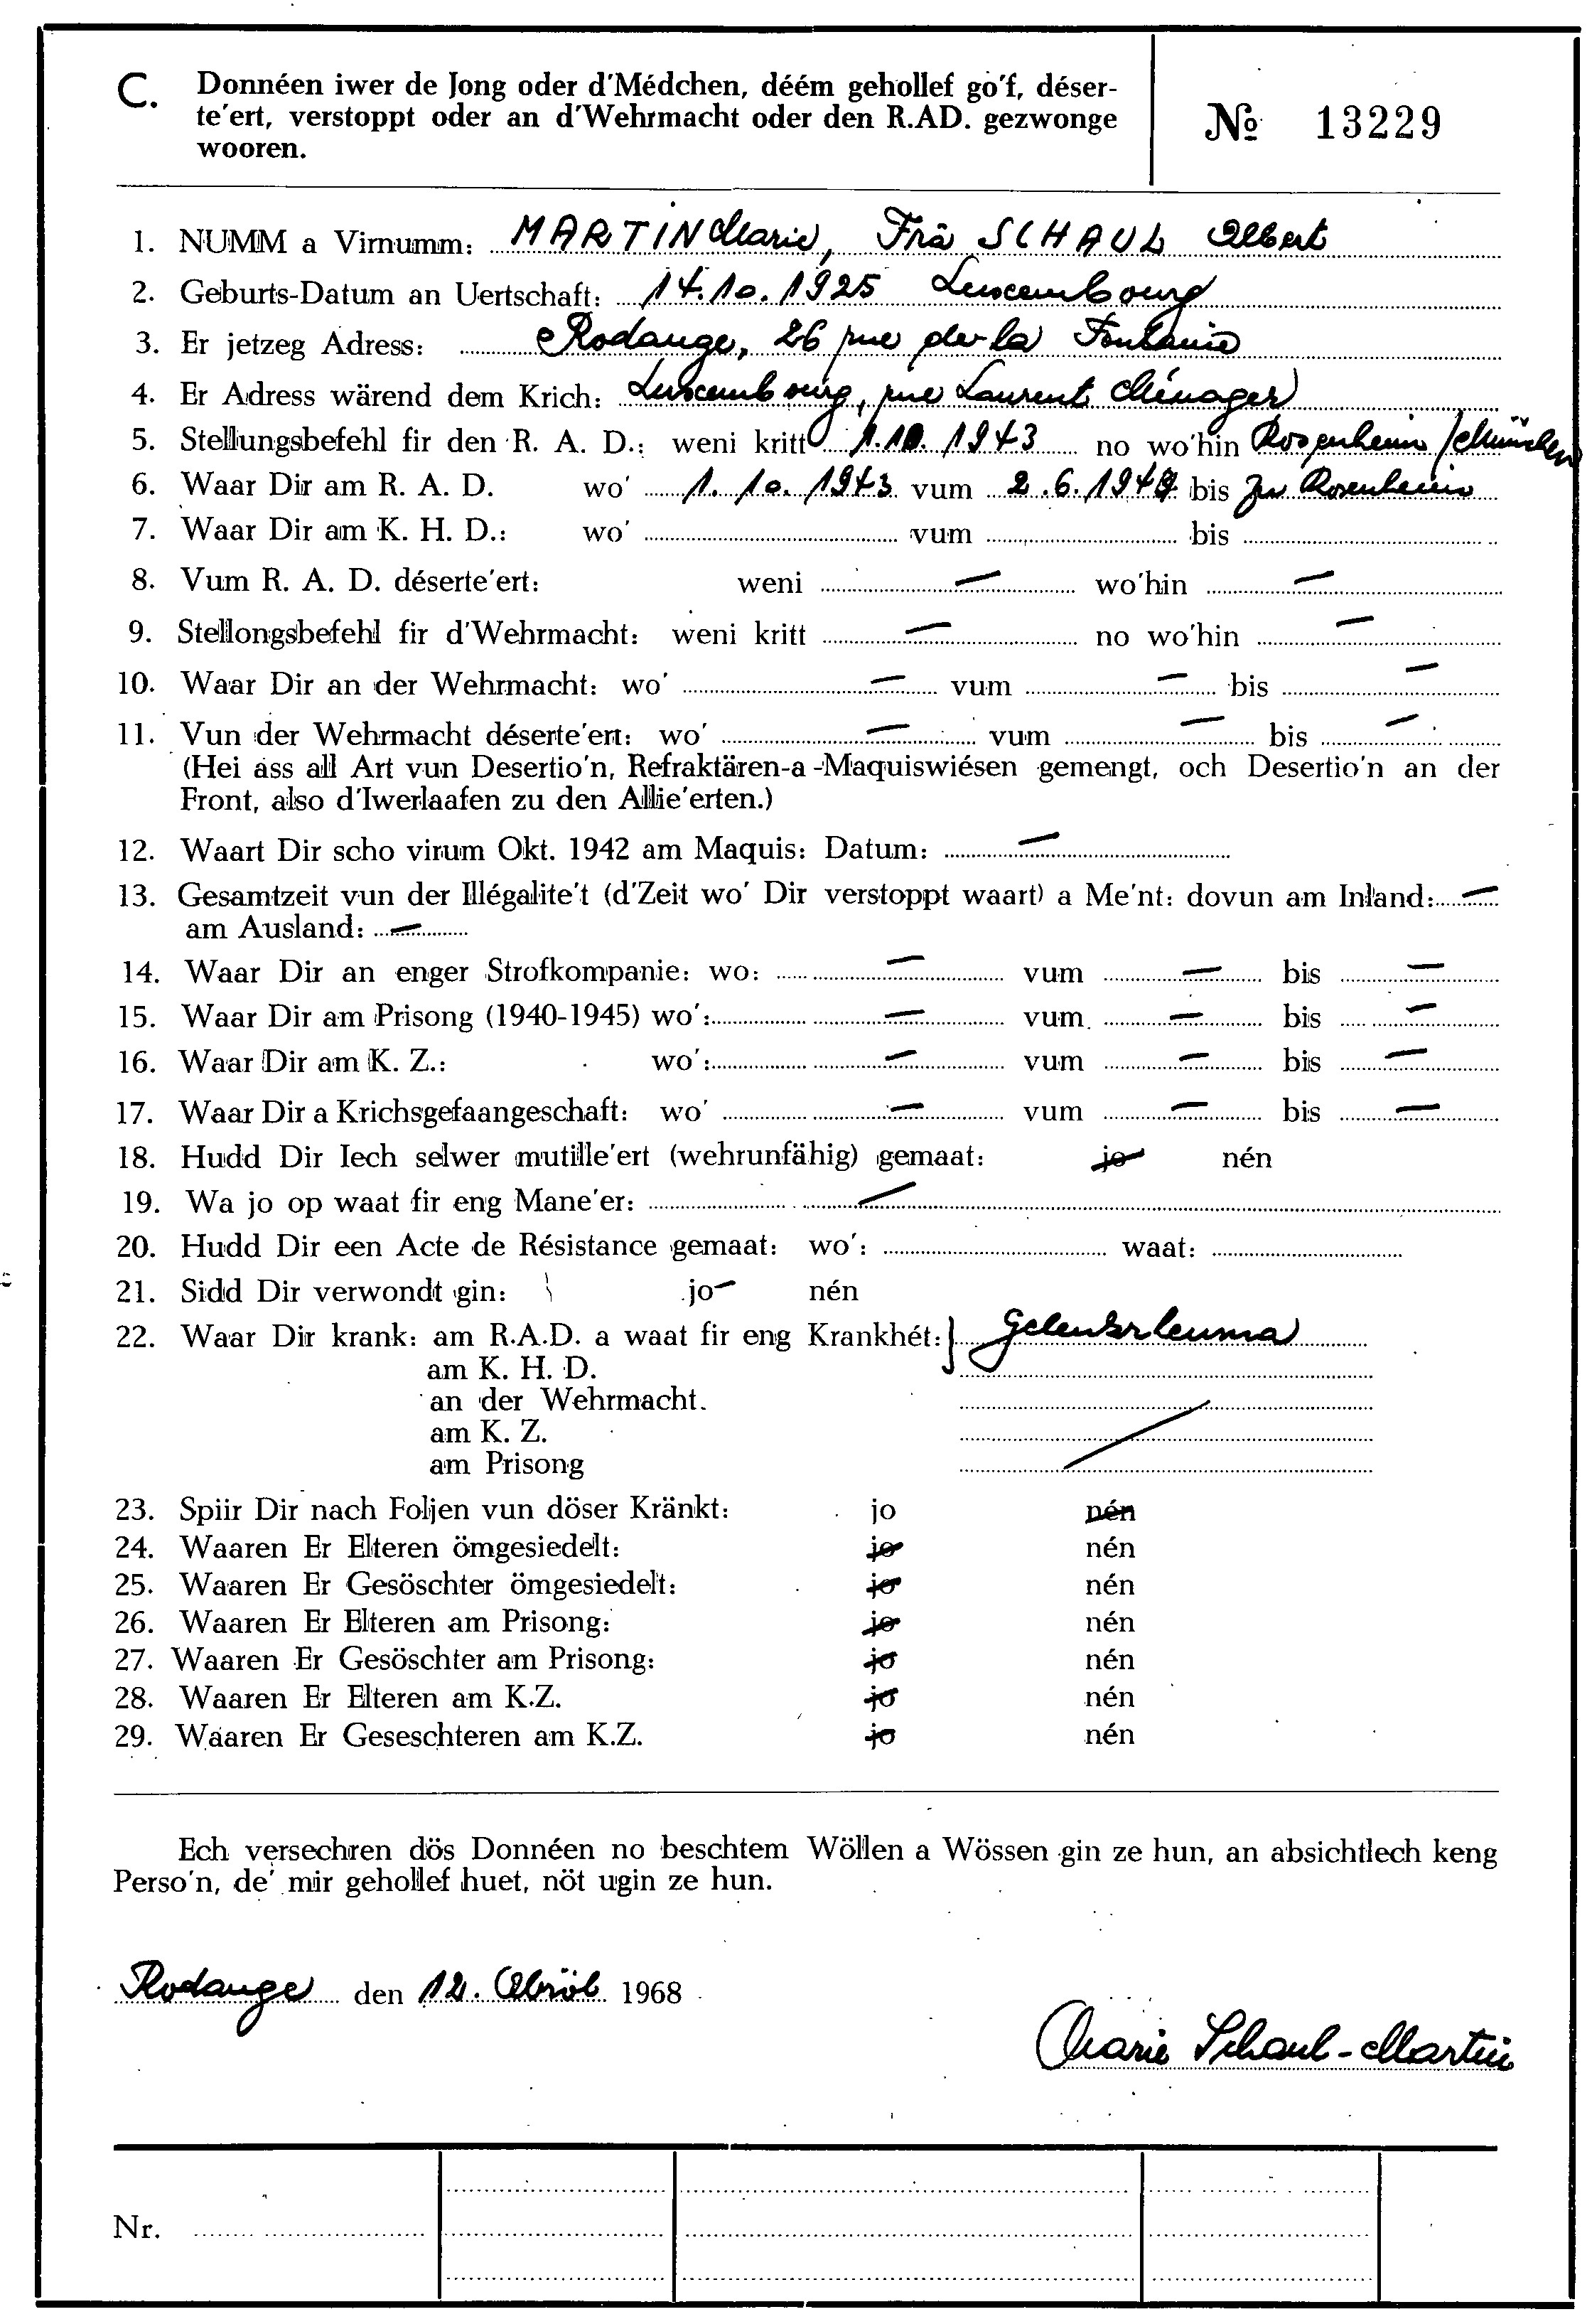 C. Donnéen iwer de Jong oder d'Médchen, déém gehollef go'f, déser-
te'ert, verstoppt oder an d'Wehrmacht oder den R.AD. gezwonge
wooren.
№ 13229
1. NUMM a Virnumm: MARTIN Marie, Frä SCHAUL Albert
2. Geburts-Datum an Uertschaft: 14.10.1925 Luxembourg
3. Er jetzeg Adress: Rodange, 26 rue de la Fontaine
4. Er Adress wärend dem Krich: Luxembourg, rue Laurent Ménager
5. Stellungsbefehl fir den R. A. D.: weni kritt 1.10.1943 no wo'hin Rosenheim / München
6. Waar Dir am R. A. D. wo' 1.10.1943 vum 2.6.194 bis Zu Rosenheim
7. Waar Dir am K. H. D.: wo' vum bis
8. Vum R. A. D. déserte'ert: weni — wo'hin —
9. Stellongsbefehl fir d'Wehrmacht: weni kritt — no wo'hin —
10. Waar Dir an der Wehrmacht: wo' — vum — bis —
11. Vun der Wehrmacht déserte'ert: wo' — vum — bis —
(Hei ass all Art vun Desertio'n, Refraktären-a-Maquiswiésen gemengt, och Desertio'n an der
Front, also d'Iwerlaafen zu den Allie'erten.)
12. Waart Dir scho virum Okt. 1942 am Maquis: Datum: —
13. Gesamtzeit vun der Illégalite't (d'Zeit wo' Dir verstoppt waart) a Me'nt: dovun am Inland: —
am Ausland: —
14. Waar Dir an enger Strofkompanie: wo: — vum — bis —
15. Waar Dir am Prisong (1940-1945) wo': — vum — bis —
16. Waar Dir am K. Z.: wo': — vum — bis —
17. Waar Dir a Krichsgefaangeschaft: wo' — vum — bis —
18. Hudd Dir Iech selwer mutille'ert (wehrunfähig) gemaat: jo nén
19. Wa jo op waat fir eng Mane'er: —
20. Hudd Dir een Acte de Résistance gemaat: wo': waat:
21. Sidd Dir verwondt gin: jo — nén
22. Waar Dir krank: am R.A.D. a waat fir eng Krankhét: Gelenkrheuma
am K. H. D.
an der Wehrmacht.
am K. Z.
am Prisong
23. Spiir Dir nach Foljen vun döser Kränkt: jo nén
24. Waaren Er Elteren ömgesiedelt: jo nén
25. Waaren Er Gesöschter ömgesiedelt: jo nén
26. Waaren Er Elteren am Prisong: jo nén
27. Waaren Er Gesöschter am Prisong: jo nén
28. Waaren Er Elteren am K.Z. jo nén
29. Waaren Er Geseschteren am K.Z. jo nén
Ech versechren dös Donnéen no beschtem Wöllen a Wössen gin ze hun, an absichtlech keng
Perso'n, de' mir gehollef huet, nöt ugin ze hun.
Rodange den 12. Abröl 1968
Marie Schaul-Martin
Nr.